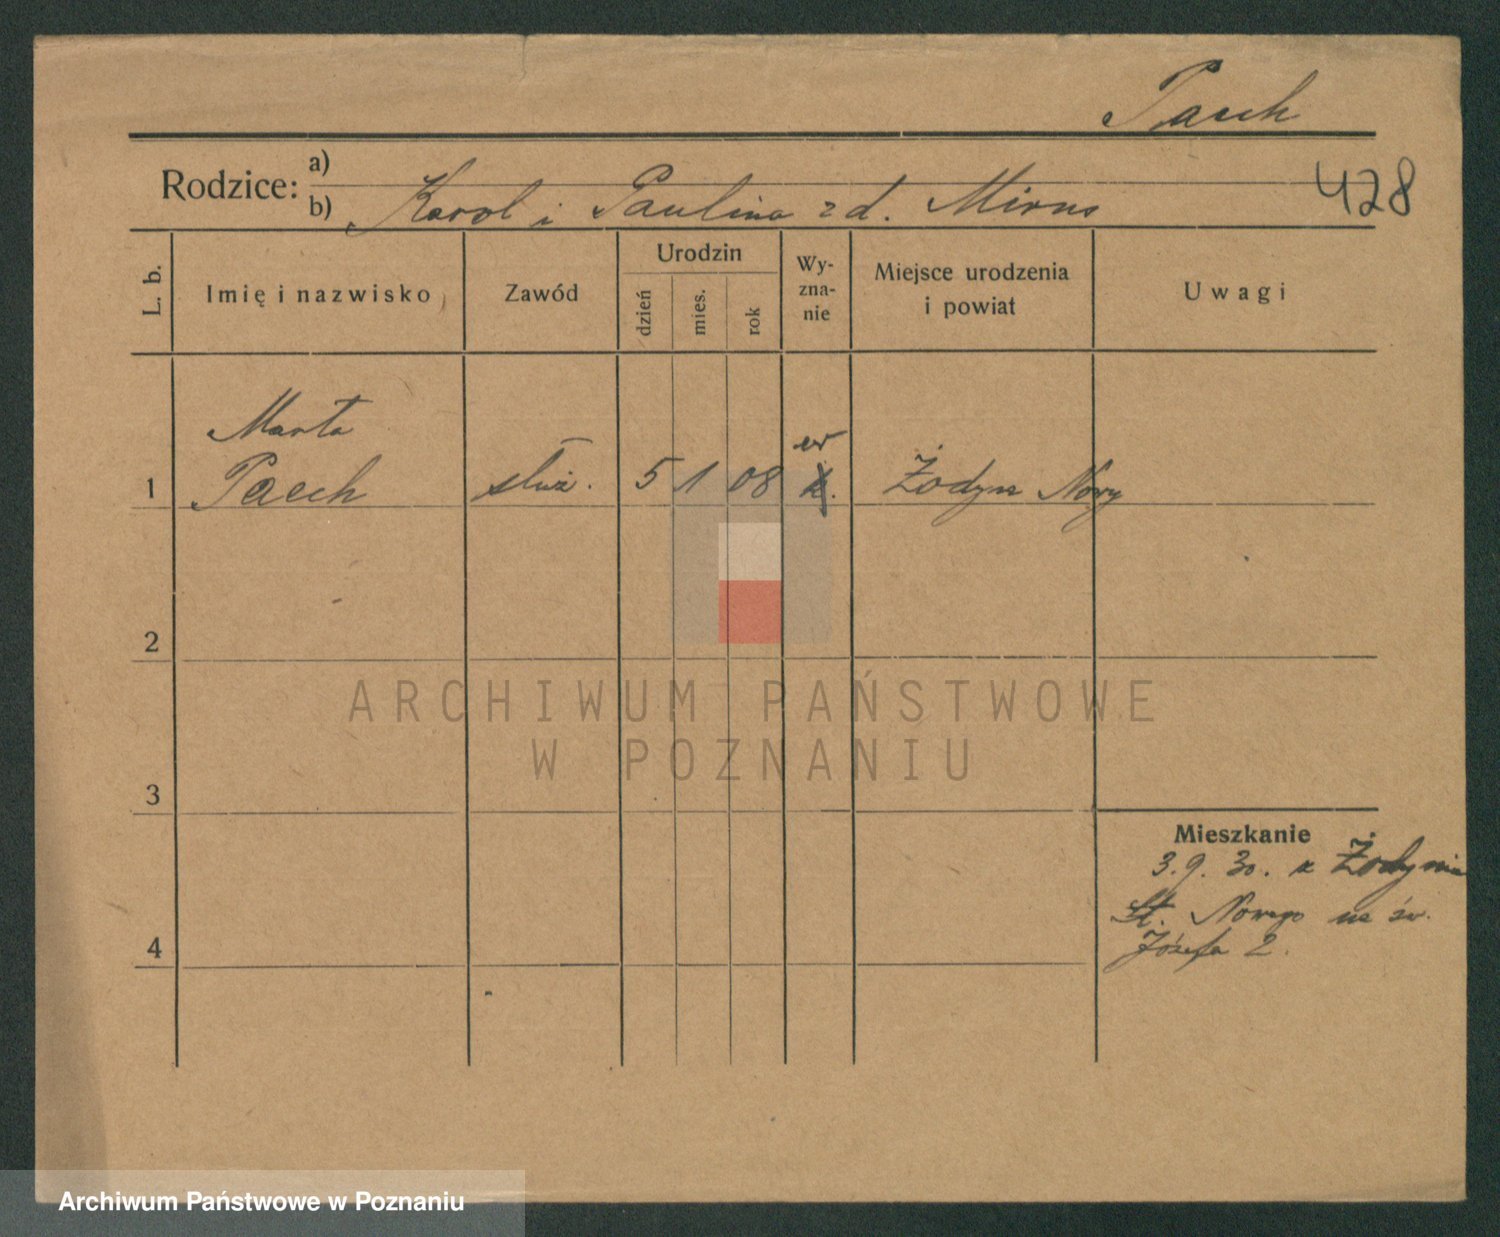 Paech
428
Rodzice: a)
b) Karol i Paulina z d. Mirus
L. b.
Imię i nazwisko
Zawód
Urodzin
dzień
mies.
rok
Wy-
zna-
nie
Miejsce urodzenia
i powiat
Uwagi
Marta
ew
1 Paech służ. 5 1 08 k. Żodyn Nowy
2
3
4
Mieszkanie
3.9.30. z Żodynia
Nowego na św.
Józefa 2.
ARCHIWUM PAŃSTWOWE
W POZNANIU
Archiwum Państwowe w Poznaniu